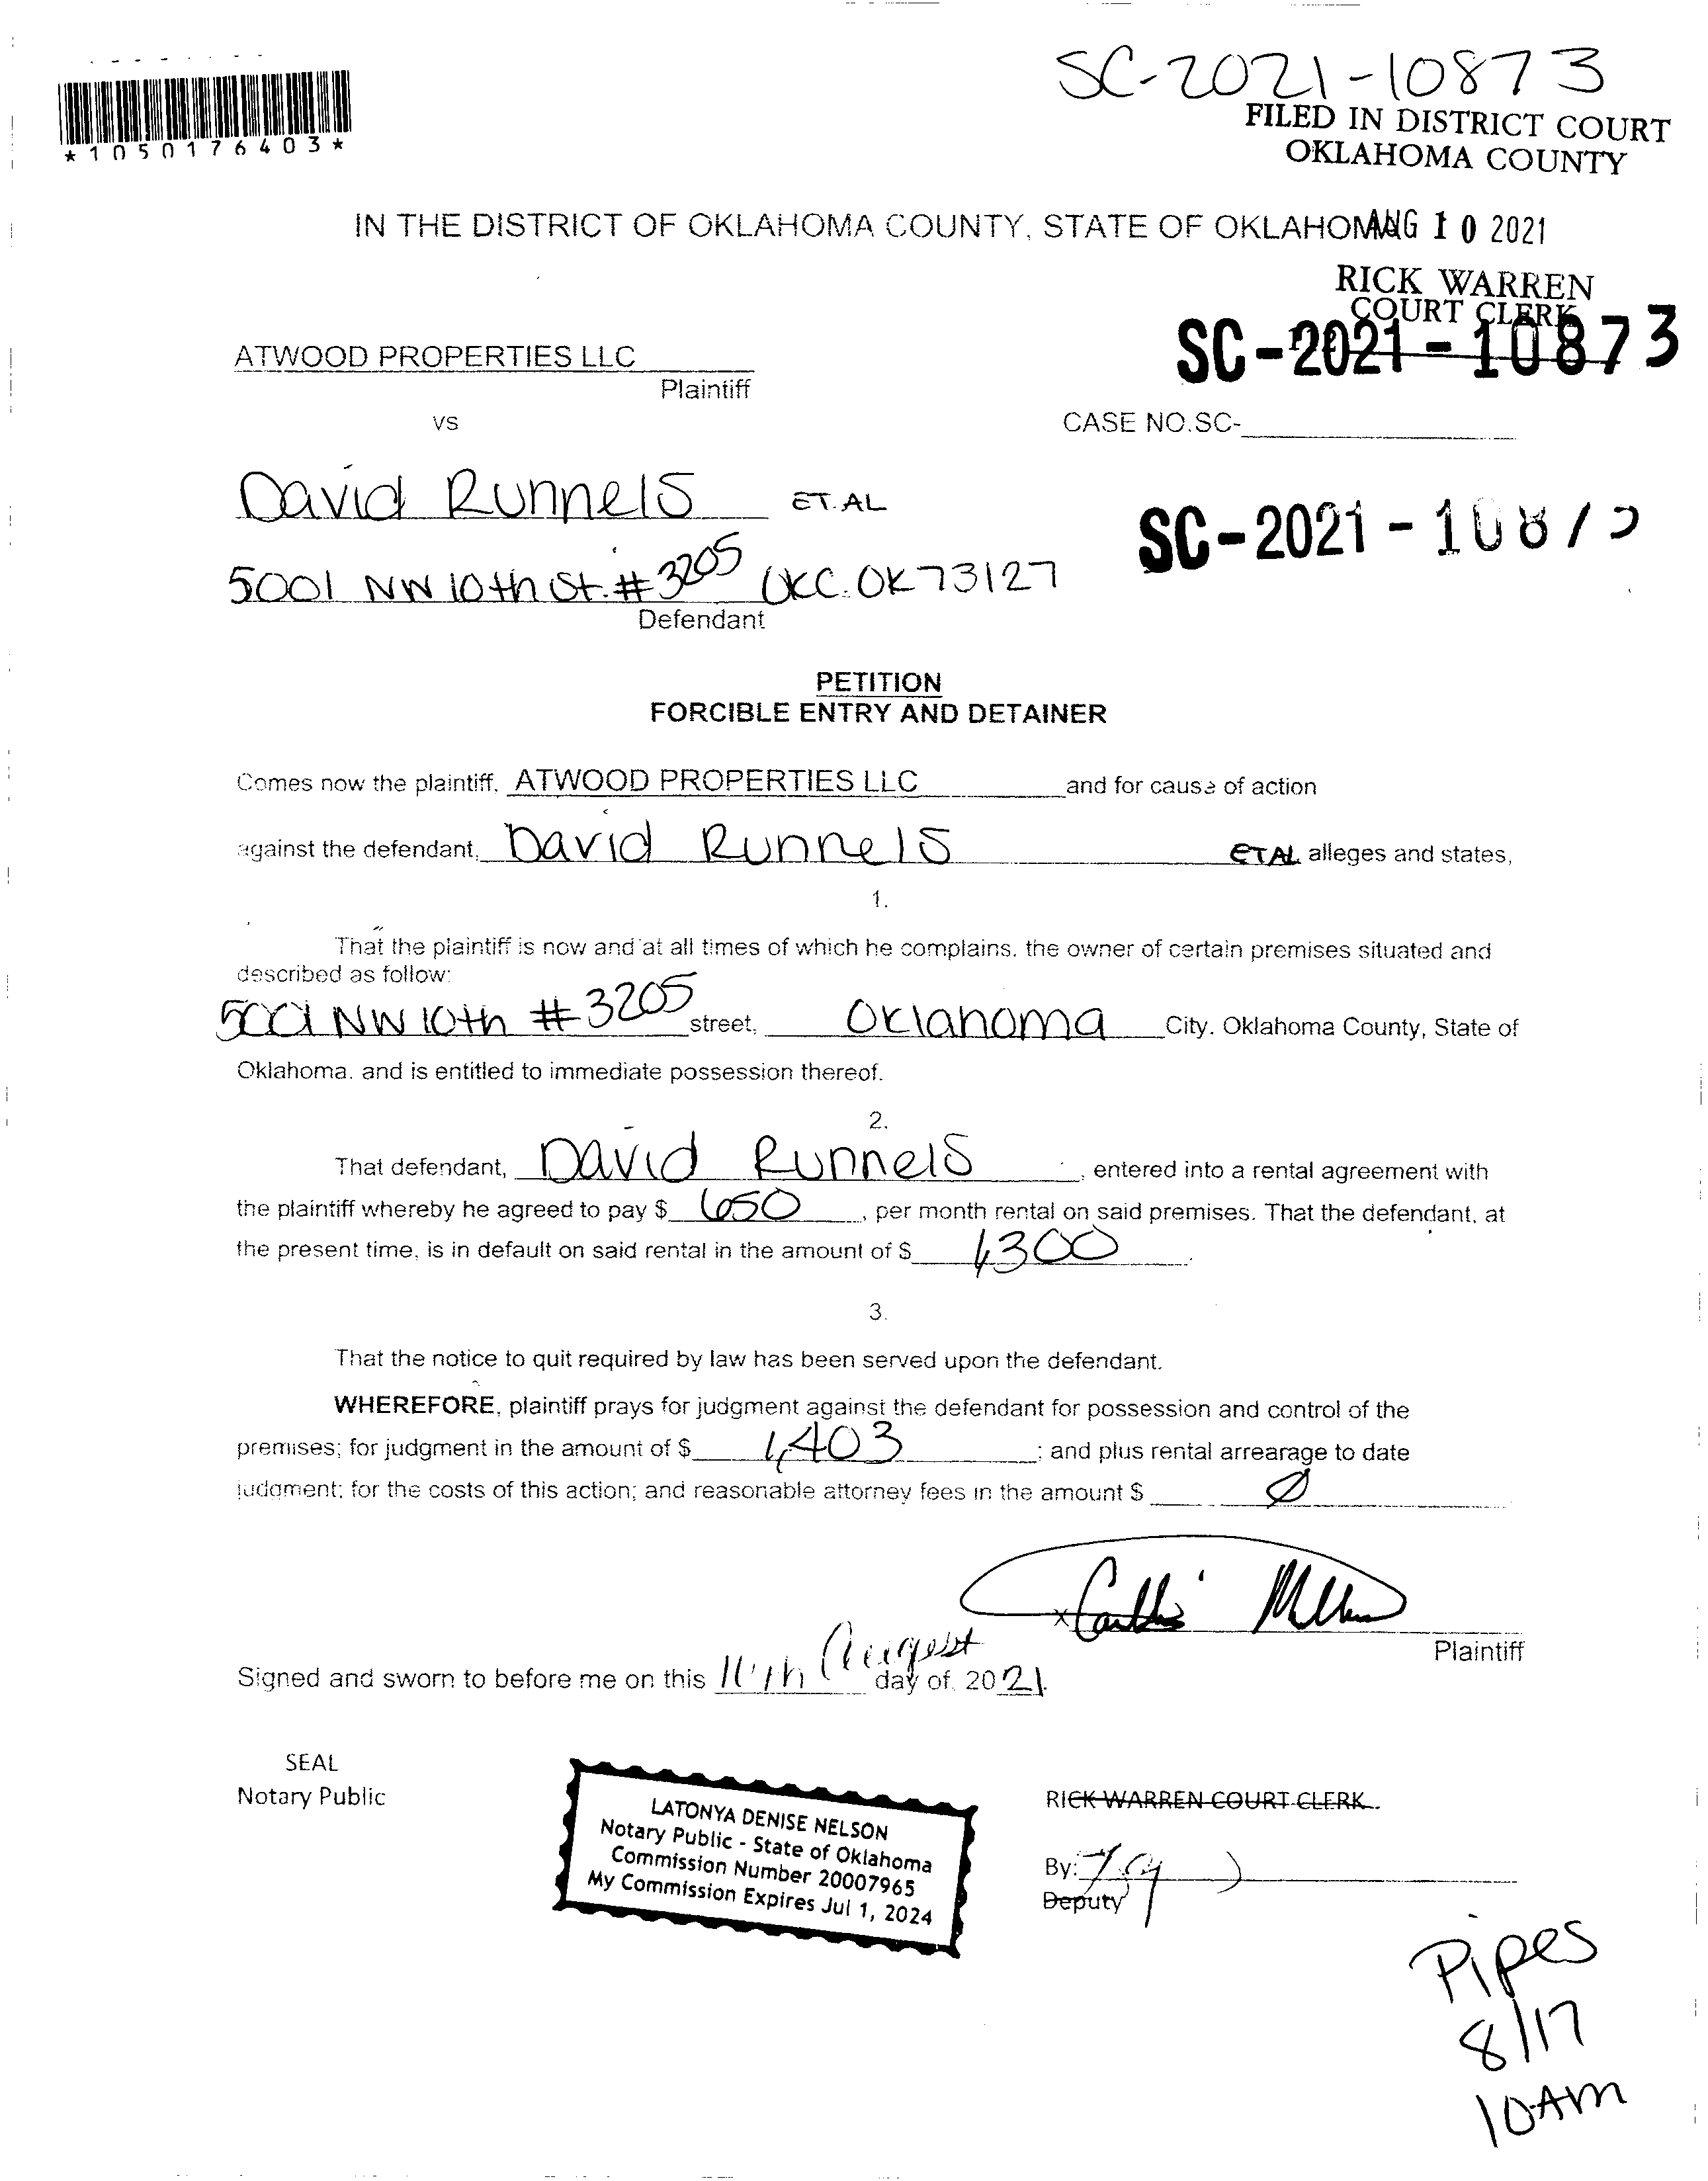 SC-2021-10873
FILED IN DISTRICT COURT
OKLAHOMA COUNTY
*1050176403*
IN THE DISTRICT OF OKLAHOMA COUNTY, STATE OF OKLAHOMA
AUG 10 2021
RICK WARREN
COURT CLERK
SC-2021-10873
ATWOOD PROPERTIES LLC
Plaintiff
vs
CASE NO.SC-
David Runnels ET.AL
SC-2021-1087
5001 NW 10th St. #3205 OKC. OK 73127
Defendant
PETITION
FORCIBLE ENTRY AND DETAINER
Comes now the plaintiff, ATWOOD PROPERTIES LLC and for cause of action
against the defendant, David Runnels ETAL alleges and states,
1.
That the plaintiff is now and at all times of which he complains, the owner of certain premises situated and
described as follow:
5001 NW 10th #3205 street, Oklahoma City. Oklahoma County, State of
Oklahoma. and is entitled to immediate possession thereof.
2.
That defendant, David Runnels, entered into a rental agreement with
the plaintiff whereby he agreed to pay $ 650, per month rental on said premises. That the defendant, at
the present time, is in default on said rental in the amount of $ 1,300.
3.
That the notice to quit required by law has been served upon the defendant.
WHEREFORE, plaintiff prays for judgment against the defendant for possession and control of the
premises; for judgment in the amount of $ 1,403; and plus rental arrearage to date
judgment; for the costs of this action; and reasonable attorney fees in the amount $ Ø
x
Plaintiff
Signed and sworn to before me on this August day of, 2021.
SEAL
Notary Public
LATONYA DENISE NELSON
Notary Public - State of Oklahoma
Commission Number 20007965
My Commission Expires Jul 1, 2024
RICK WARREN COURT CLERK
By:
Deputy
Pipes
8/17
10AM